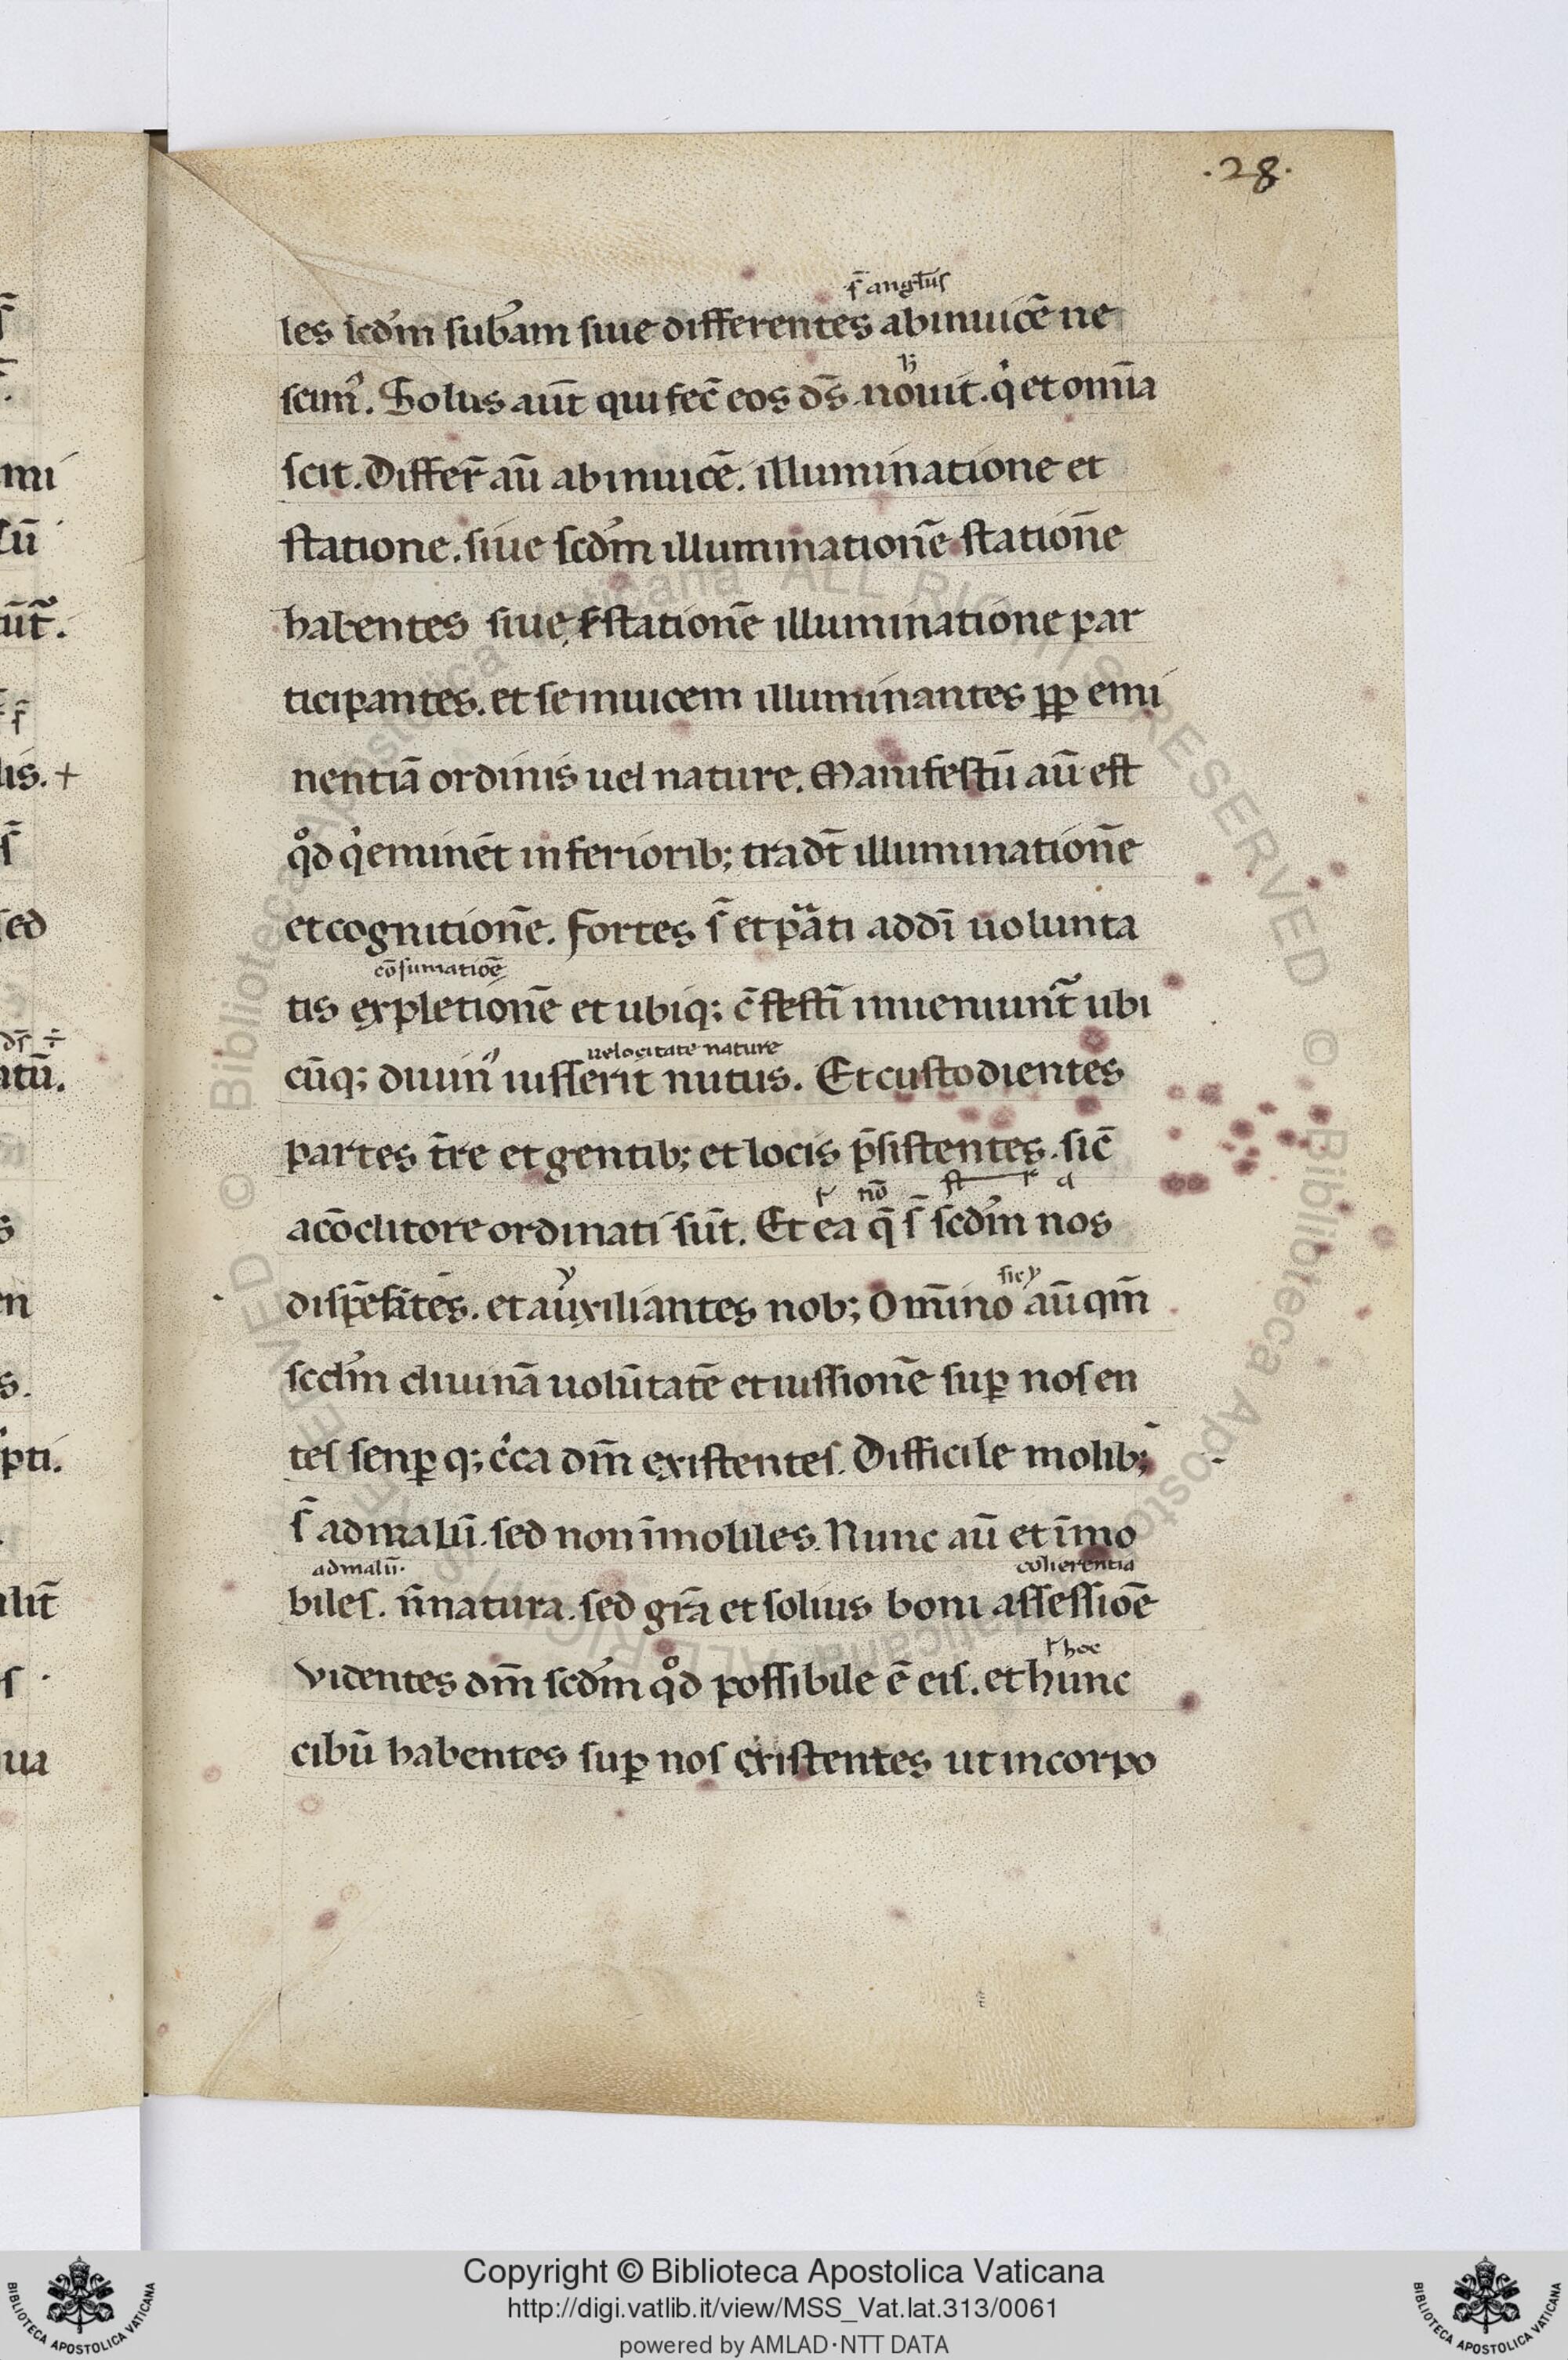 .28.
s̄ angl̄us
les scd'm sub'am siue differentes abinuicē ne
scim'. Solus aut̄ qui fec̄ eos ds̄ nouit. qi et om̄ia
scit. Differ̄ aū abinuicē. illuminatione et
statione. siue scd'm illuminationē stationē
habentes siue stationē illuminatione par
ticipantes. et se inuicem illuminantes pp emi
nentiā ordinis uel nature. Manifestū aū est
qd qi eminēt inferiorib; tradt̄ illuminationē
et cognitionē. fortes s̄ et parati ad dī uolunta
cōsumatioē
tis expletionē et ubiq; inueniunt̄ ubi
uelocitate nature
cūq; diuin' iusserit nutus. Et custodientes
partes t̄re et gentib; et locis p̄sistentes. sic̄
nō
a cōditore ordinati sūt. Et ea q̄ s̄ scd'm nos
sic
et auxiliantes nob; Omīno aū qm̄
scd'm diuinā uolūtatē et iussionē sup nos en
tes senp q; cica dm̄ existentes. Difficile mobib;
s̄ ad malū. sed non īmobiles. Nunc aū et īmo
ad malū. coherentia
biles. n̄ natura. sed grā et solius boni assessioē
hoc
Videntes dm̄ scd'm qd possibile ē eis. et hunc
cibū habentes sup nos existentes ut incorpo
mi
sed
ua
Copyright © Biblioteca Apostolica Vaticana
http://digi.vatlib.it/view/MSS_Vat.lat.313/0061
powered by AMLAD·NTT DATA
BIBLIOTECA APOSTOLICA VATICANA
BIBLIOTECA APOSTOLICA VATICANA